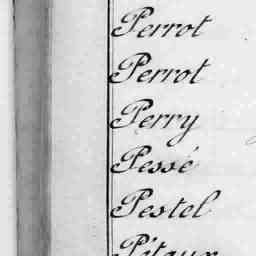 Perrot
Perrot
Perry
Pessé
Pestel